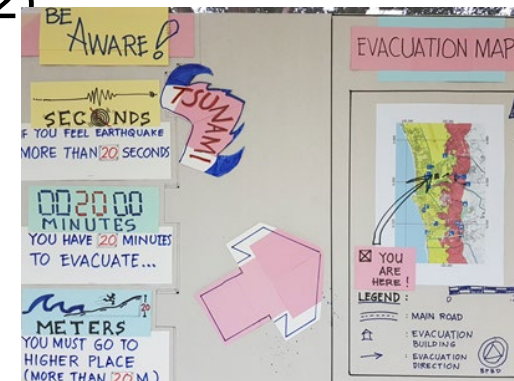 2)
BE
AWARE!
SECONDS
IF YOU FEEL EARTHQUAKE
MORE THAN 20 SECONDS
TSUNAMI
00 20 00
MINUTES
YOU HAVE 20 MINUTES
TO EVACUATE...
1
20
METERS
YOU MUST GO TO
HIGHER PLACE
(MORE THAN 20 M)
EVACUATION MAP
YOU
ARE
HERE!
LEGEND :
: MAIN ROAD
: EVACUATION
BUILDING
: EVACUATION
DIRECTION
BPBD